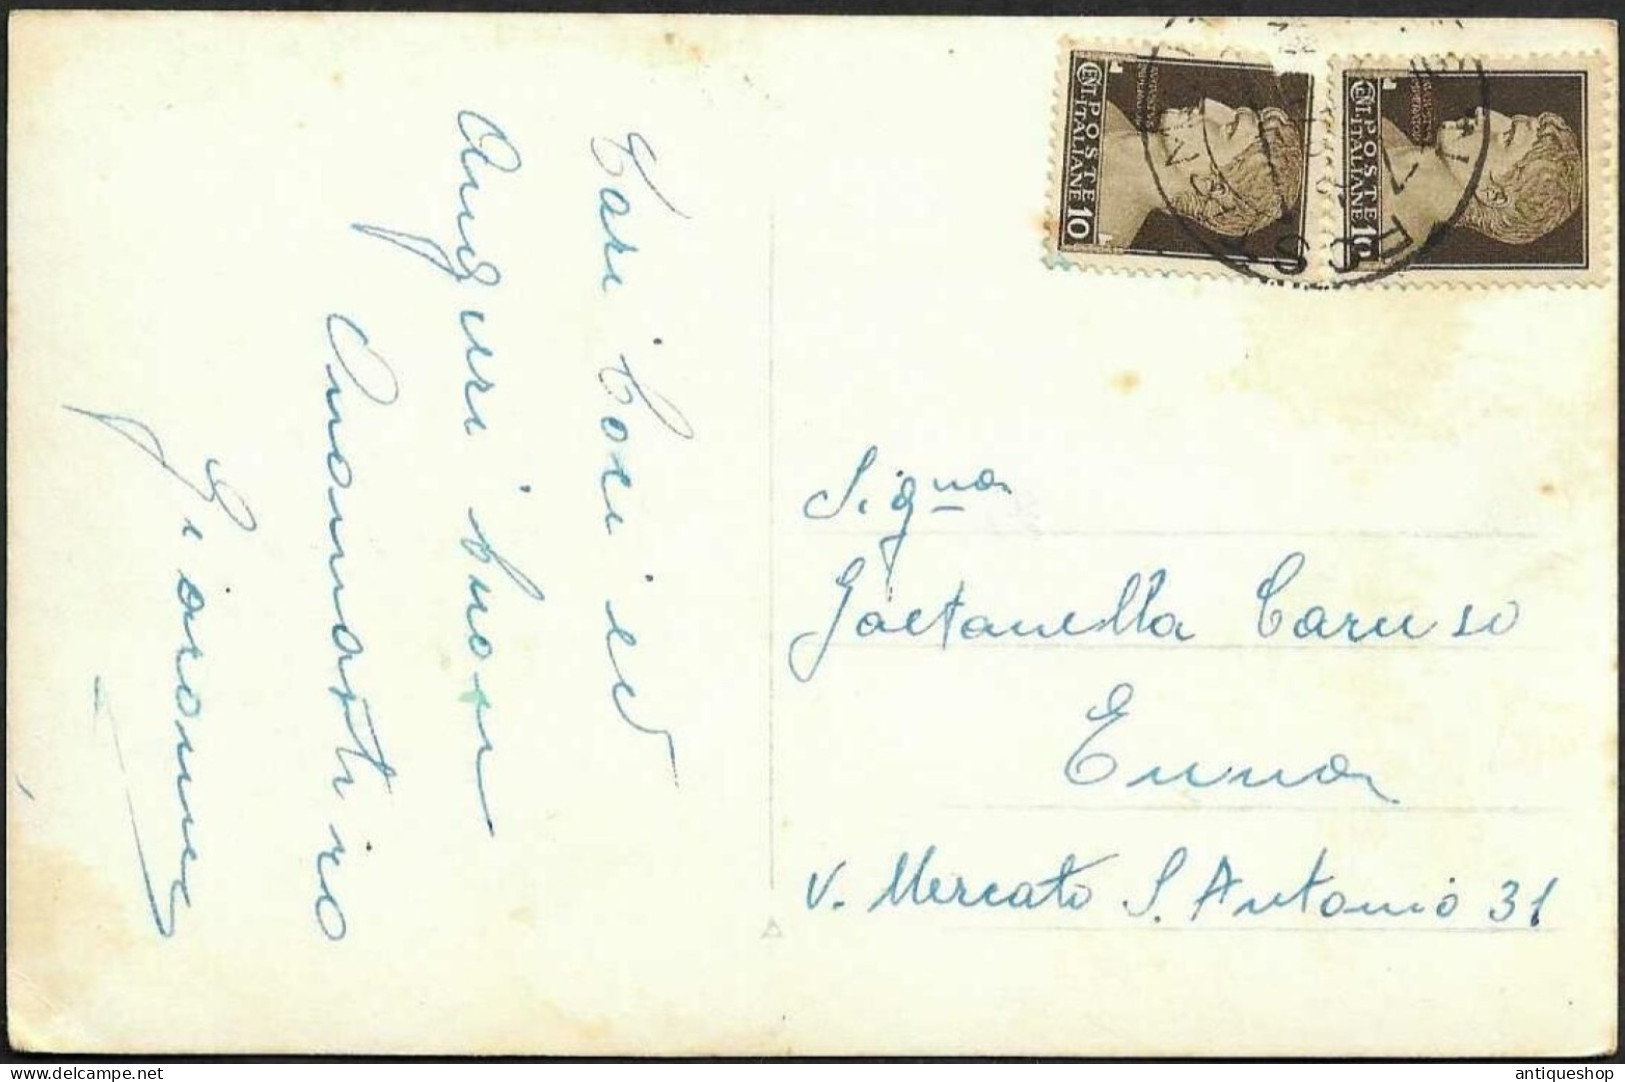 Cari baci ed
Auguri buon
Onomastico
POSTE
ITALIANE 10
CENT.
POSTE
ITALIANE 10
CENT.
Sig.na
Gaetanella Caruso
Enna
V. Mercato S. Antonio 31
delcampe.net
antiqueshop